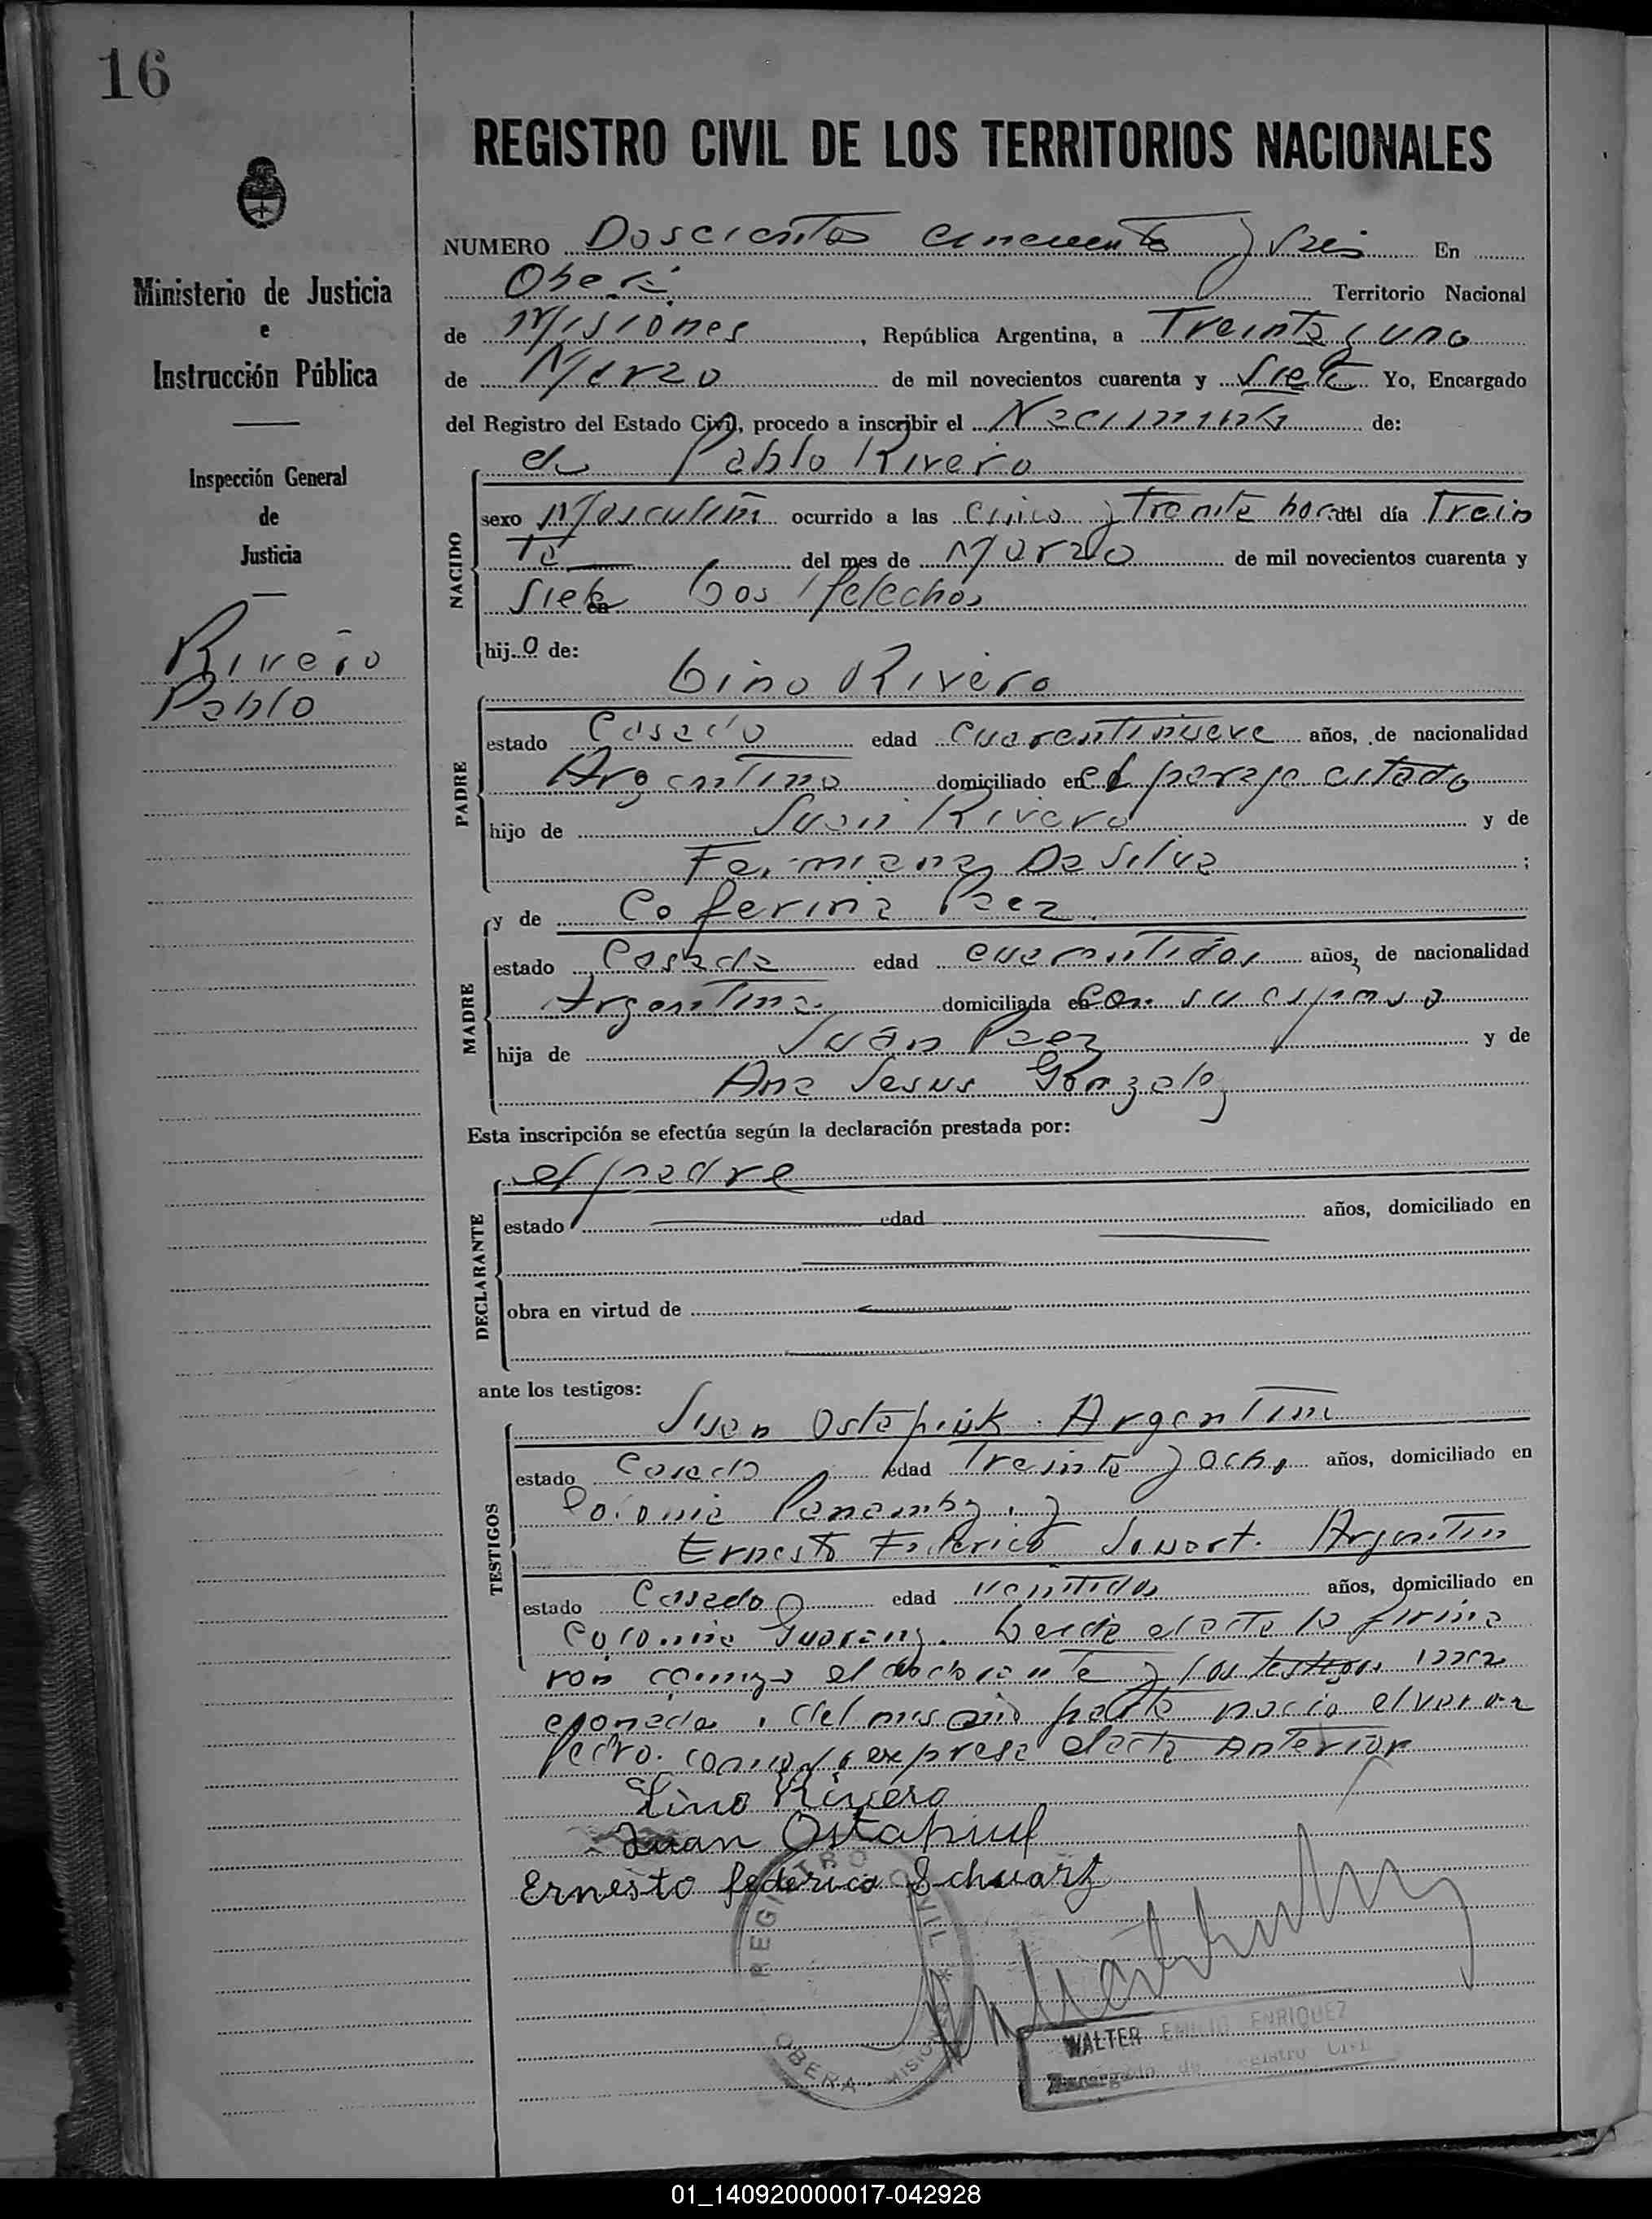 16
REGISTRO CIVIL DE LOS TERRITORIOS NACIONALES
Ministerio de Justicia
e
Instrucción Pública
Inspección General
de
Justicia
Rivero
Pablo
NUMERO Doscientos cincuenta y seis En
Oberá Territorio Nacional
de Misiones, República Argentina, a Treinta y uno
de Marzo de mil novecientos cuarenta y siete Yo, Encargado
del Registro del Estado Civil, procedo a inscribir el Nacimiento de:
de Pablo Rivero
NACIDO
sexo Masculino ocurrido a las cinco y treinta horas del día Trein
ta del mes de Marzo de mil novecientos cuarenta y
siete en Los Helechos
hijo de:
Lino Rivero
PADRE
estado Casado edad cuarentinueve años, de nacionalidad
Argentino domiciliado en el paraje citado
hijo de Juan Rivero y de
Fermiana Da Silva ;
y de Ceferina Paez
MADRE
estado Casada edad cuarentidos años, de nacionalidad
Argentina domiciliada en con su esposo
hija de Juan Paez y de
Ana Jesus Gonzalez
Esta inscripción se efectúa según la declaración prestada por:
el padre
DECLARANTE
estado edad años, domiciliado en
obra en virtud de
ante los testigos:
Juan Ostapiuk. Argentino
TESTIGOS
estado Casado edad treinta y ocho años, domiciliado en
Colonia Panamby, y
Ernesto Federico Argentino
estado Casado edad ventidos años, domiciliado en
Colonia Guarany. Leida el acta la firma
ron conmigo el declarante y los testigos
del mismo parto nacio el varon
Pedro. como lo expresa el acta anterior
Lino Rivero
Juan Ostapiuk
Ernesto federico Schuarz
REGISTRO CIVIL
OBERA - MISIONES
WALTER EMILIO ENRIQUEZ
Encargado de Registro Civil
01_140920000017-042928